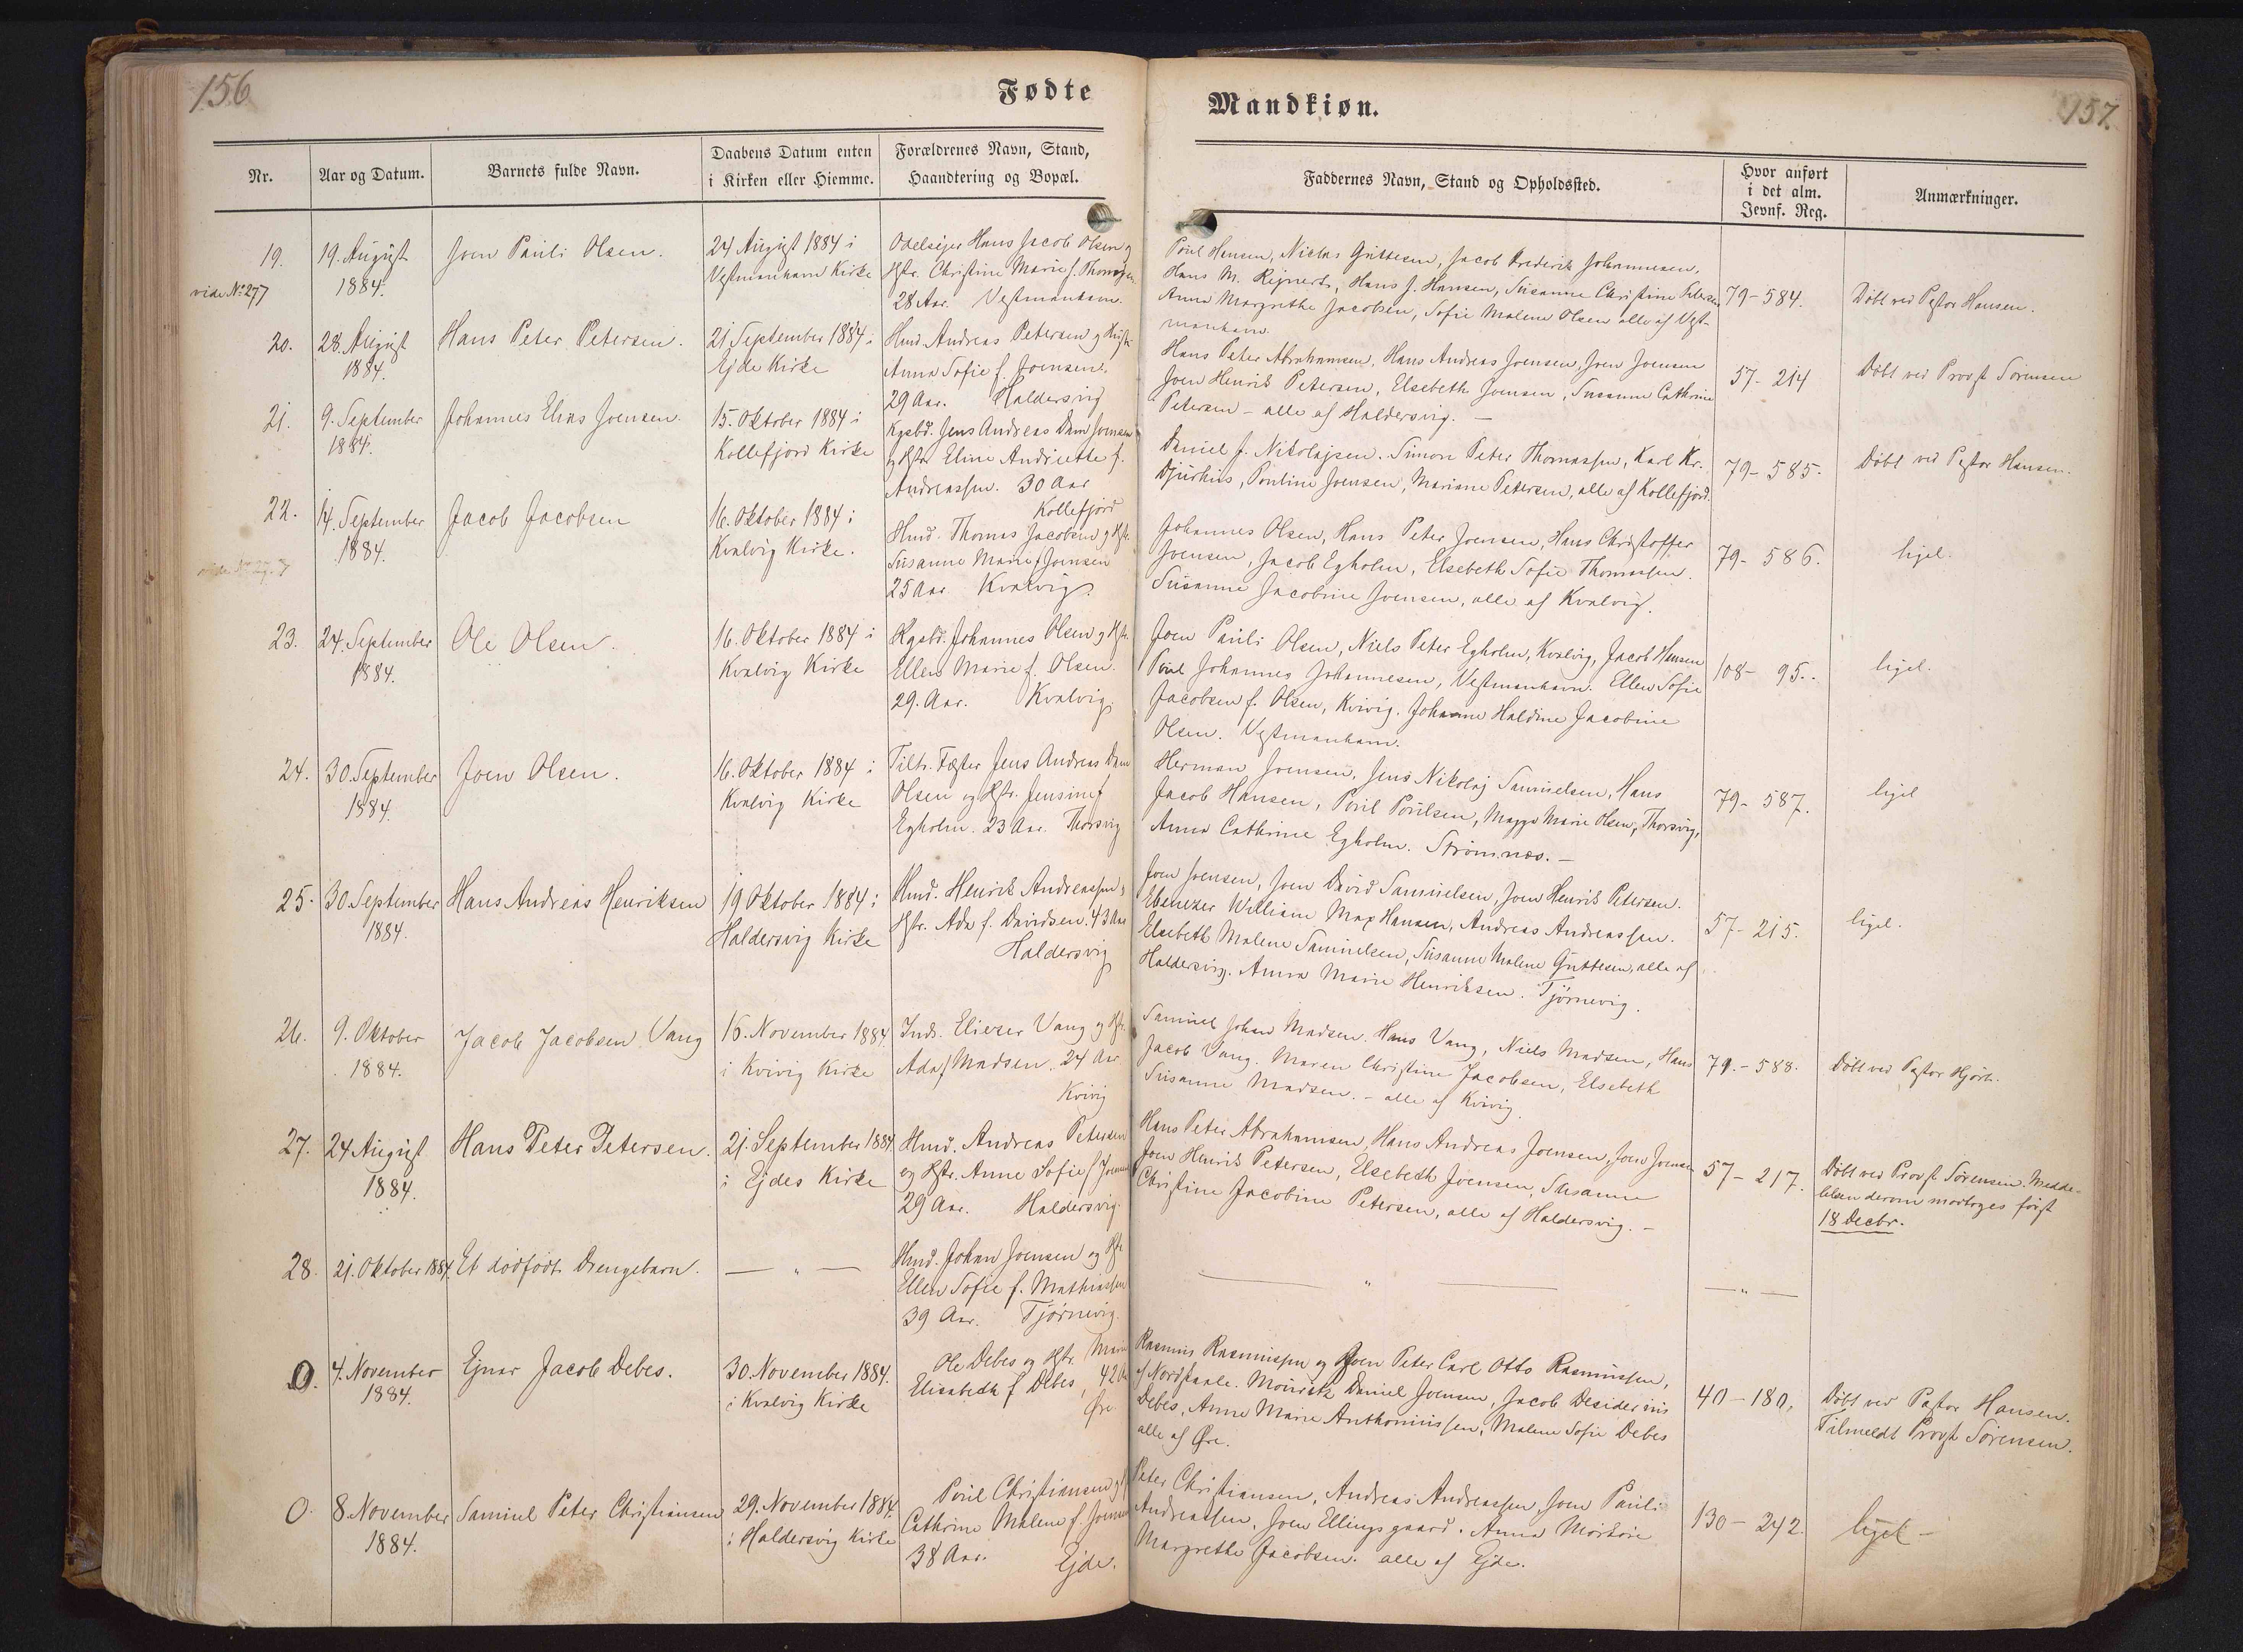 156
Fødte
Nr.
Aar og Datum.
Barnets fulde Navn.
Daabens Datum enten
i Kirken eller Hiemme.
Forældrenes Navn, Stand,
Haandtering og Bopæl.
19.
vide No 27
19. August
1884.
Joen Pauli Olsen.
24 August 1884 i
Vestmanhavn Kirke
Odelsejer Hans Jacob Olsen og
Hstr. Christine Marie f. Thomsen
28 Aar. Vestmanhavn.
20.
28. August
1884.
Hans Peter Petersen.
21 September 1884 i
Ejde Kirke
Hmd. Andreas Petersen og Hustr.
Anna Sofie f. Joensen.
29 Aar. Haldersvig
21.
9. September
1884.
Johannes Elias Joensen.
15. Oktober 1884 i
Kollefjord Kirke
Kgsbd. Jens Andreas Dam Joensen
og Hstr Eline Andriette f.
Andreassen. 30 Aar
Kollefjord
22.
14. September
1884.
Jacob Jacobsen
16. Oktober 1884 i
Kvalvig Kirke.
Hmd. Thomas Jacobsen og Hstr.
Susanne Marie f Joensen
25 Aar Kvalvig.
23.
24. September
1884.
Ole Olsen.
16. Oktober 1884 i
Kvalvig Kirke
Kgsbd. Johannes Olsen og Hstr.
Ellen Marie f. Olsen.
29. Aar. Kvalvig.
24.
30. September
1884.
Joen Olsen.
16. Oktober 1884 i
Kvalvig Kirke
Tiltr. Fæster Jens Andreas Dam
Olsen og Hstr. Jensine f
Egholm. 23 Aar. Thorsvig
25.
30. September
1884.
Hans Andreas Henriksen
19 Oktober 1884 i
Haldersvig Kirke
Hmd. Henrik Andreassen og
Hstr. Ada f. Davidsen. 43 Aar
Haldersvig
26.
9. Oktober
1884.
Jacob Jacobsen Vang
16. November 1884.
i Kvivig Kirke
Inds. Eliezer Vang og Hstr.
Ada f Madsen. 24 Aar
Kvivig
27.
24 August
1884.
Hans Peter Petersen.
21. September 1884
i Ejdes Kirke
Hmd. Andreas Petersen
og Hstr. Anne Sofie f Joensen
29 Aar. Haldersvig.
28.
21. Oktober 1884.
Et dødfødt Drengebarn.
— „ —
Hmd. Johan Joensen og Hstr
Ellen Sofie f. Mathiassen
39 Aar. Tjørnevig.
0.
4. November
1884.
Ejnar Jacob Debes.
30. November 1884.
i Kvalvig Kirke
Ole Debes og Hstr. Marie
Elisabeth f Debes, 42 Aar
Øre
0.
8. November
1884.
Samuel Peter Christiansen
29. November 1884.
i Haldersvig Kirke
Poul Christiansen og
Cathrine Malene f. Joensen
38 Aar.
Ejde.
157
Mandkiøn.
Faddernes Navn, Stand og Opholdssted.
Hvor anført
i det alm.
Jevnf. Reg.
Anmærkninger.
Poul Hansen, Niclas Guttesen, Jacob Frederik Johannesen,
Hans M. Rejnert, Hans J. Hansen, Susanne Christine Petersen
Anna Margrethe Jacobsen, Sofie Malene Olsen alle af Vest-
manhavn.
79-584.
Døbt ved Pastor Hansen.
Hans Peter Abrahamsen, Hans Andreas Joensen, Joen Joensen
Joen Henrik Petersen, Elsebeth Joensen, Susanne Cathrine
Petersen – alle af Haldersvig. –
57-214
Døbt ved Provst Sørensen
Daniel J. Nikolajsen. Simon Peter Thomassen, Karl Kr.
Djurhus, Pouline Joensen, Mariane Petersen, alle af Kollefjord.
79-585.
Døbt ved Pastor Hansen.
Johannes Olsen, Hans Peter Joensen, Hans Christoffer
Joensen, Jacob Egholm, Elsebeth Sofie Thomassen.
Susanne Jacobine Joensen, alle af Kvalvig.
79-586.
ligel.
Joen Pauli Olsen, Niels Peter Egholm, Kvalvig, Jacob Hansen
Poul Johannes Johannesen, Vestmanhavn. Ellen Sofie
Jacobsen f. Olsen, Kvivig. Johanne Haldine Jacobine
Olsen. Vestmanhavn.
108- 95.
ligel.
Herman Joensen, Jens Nikolaj Samuelsen, Hans
Jacob Hansen, Poul Poulsen, Magga Marie Olsen, Thorsvig,
Anna Cathrine Egholm. Strømnæs. –
79-587.
ligel
Joen Joensen, Joen David Samuelsen, Joen Henrik Petersen.
Ebenezer William Max Hansen, Andreas Andreassen.
Elsebeth Malene Samuelsen, Susanne Malene Guttesen, alle af
Haldersvig. Anna Marie Henriksen. Tjørnevig.
57-215.
ligel.
Samuel Johan Madsen. Hans Vang, Niels Madsen, Hans
Jacob Vang. Maren Christine Jacobsen, Elsebeth
Susanne Madsen. – alle af Kvivig.
79.-588.
Døbt ved Pastor Hjort.
Hans Peter Abrahamsen, Hans Andreas Joensen, Joen Joensen
Joen Henrik Petersen, Elsebeth Joensen, Susanne
Christine Jacobine Petersen, alle af Haldersvig. –
57-217.
Døbt ved Provst Sørensen. Medde-
lelsen derom modtoges først
18 Decbr.
— „ —
— „ —
Rasmus Rasmussen og Joen Peter Carl Otto Rasmussen,
af Nordskaale. Mouritz Daniel Joensen, Jacob Desiderius
Debes, Anne Marie Anthoniussen, Malene Sofie Debes
alle af Øre.
40-180,
Døbt ved Pastor Hansen.
Tilmeldt Provst Sørensen.
Peter Christiansen, Andreas Andreassen, Joen Pauli
Andreassen, Joen Ellingsgaard. Anna Mørkøre
Margrethe Jacobsen. alle af Ejde.
130-242.
ligel –